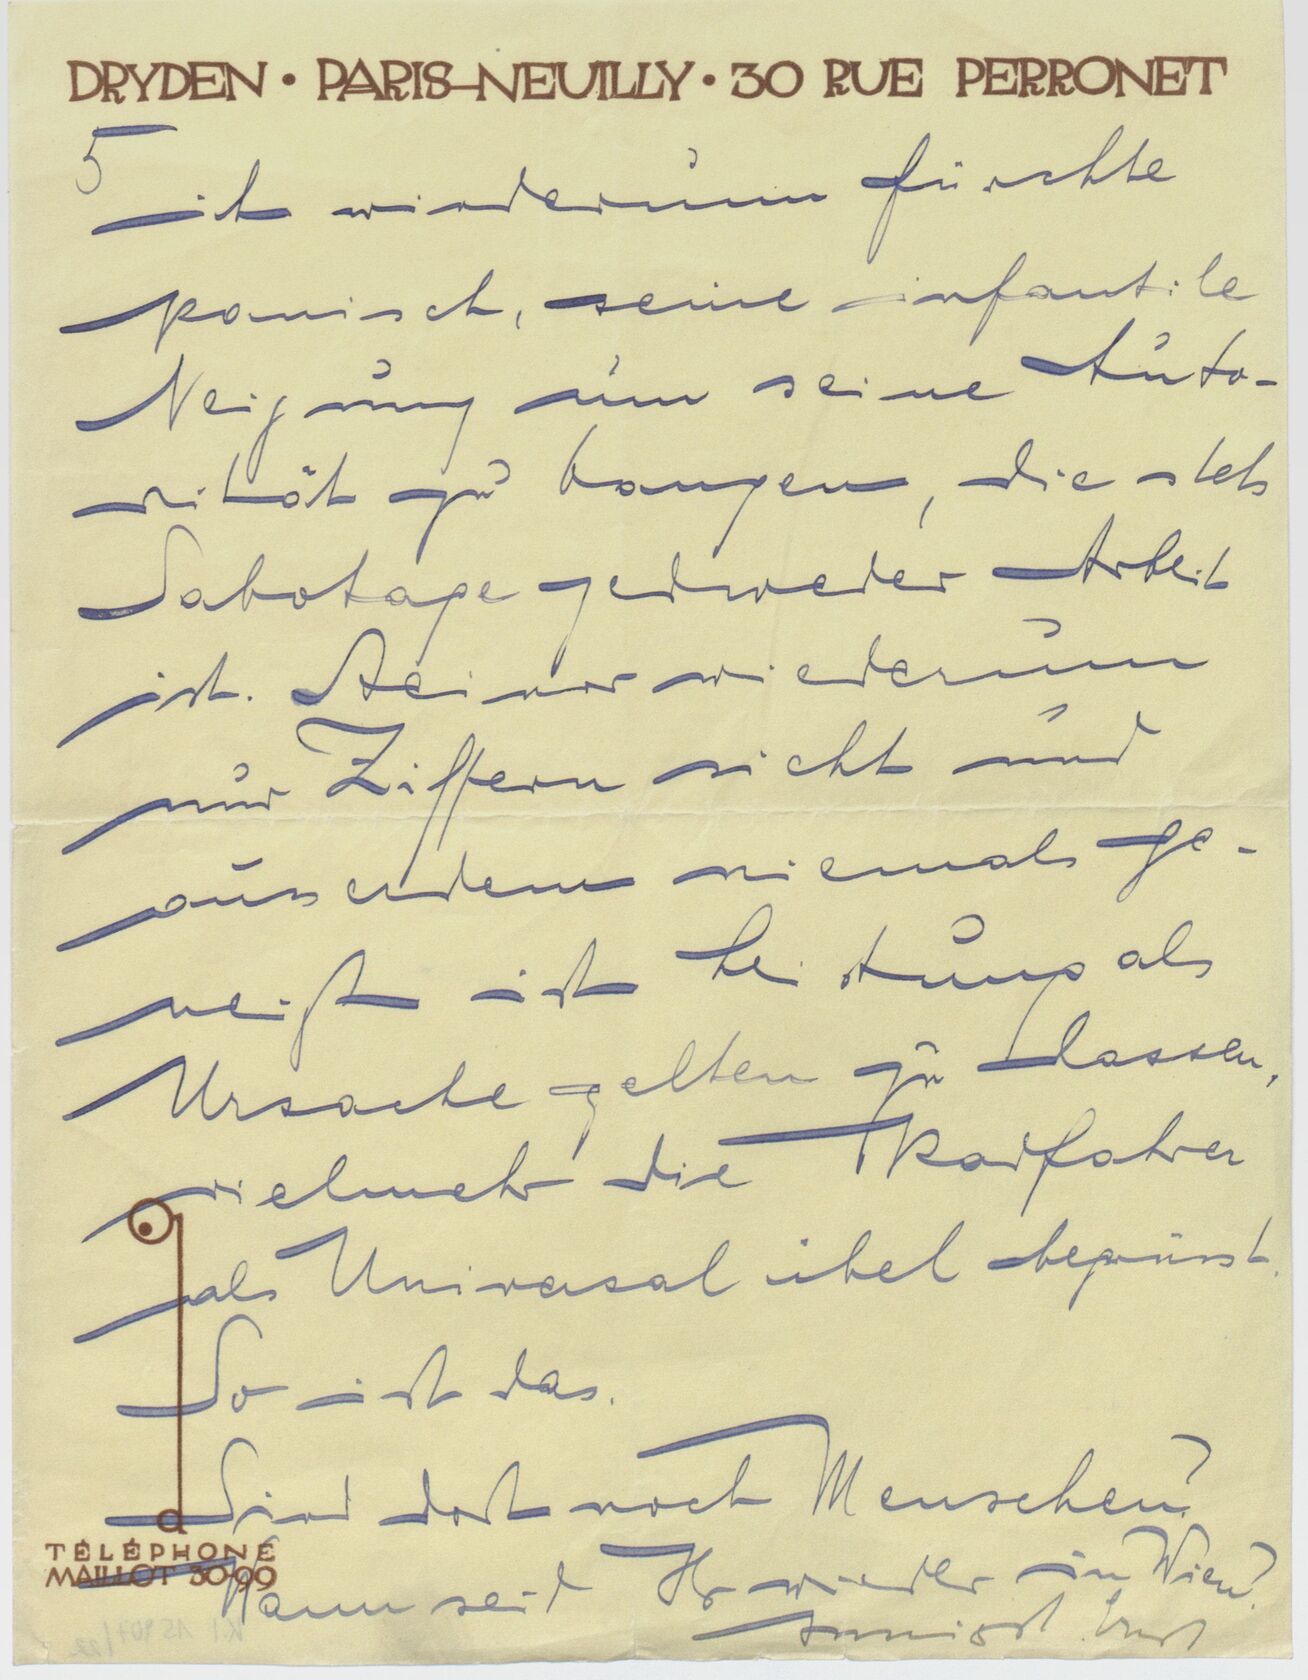 DRYDEN • PARIS–NEUILLY • 30 RUE PERRONET
5
ich wiederum fürchte
panisch, seine infantile
Neigung um seine Auto-
rität zu bangen, die stets
Sabotage jedweder Arbeit
ist. Steiner wiederum
nur Ziffern sieht und
ausserdem niemals ge-
neigt ist Leistung als
Ursache gelten zu lassen,
vielmehr die Radfahrer
als Universal übel begrüsst.
So ist das.
Sind dort noch Menschen?
Wann seid Ihr wieder in Wien?
innigst Ernst
d
TÉLÉPHONE
MAILLOT 30-99